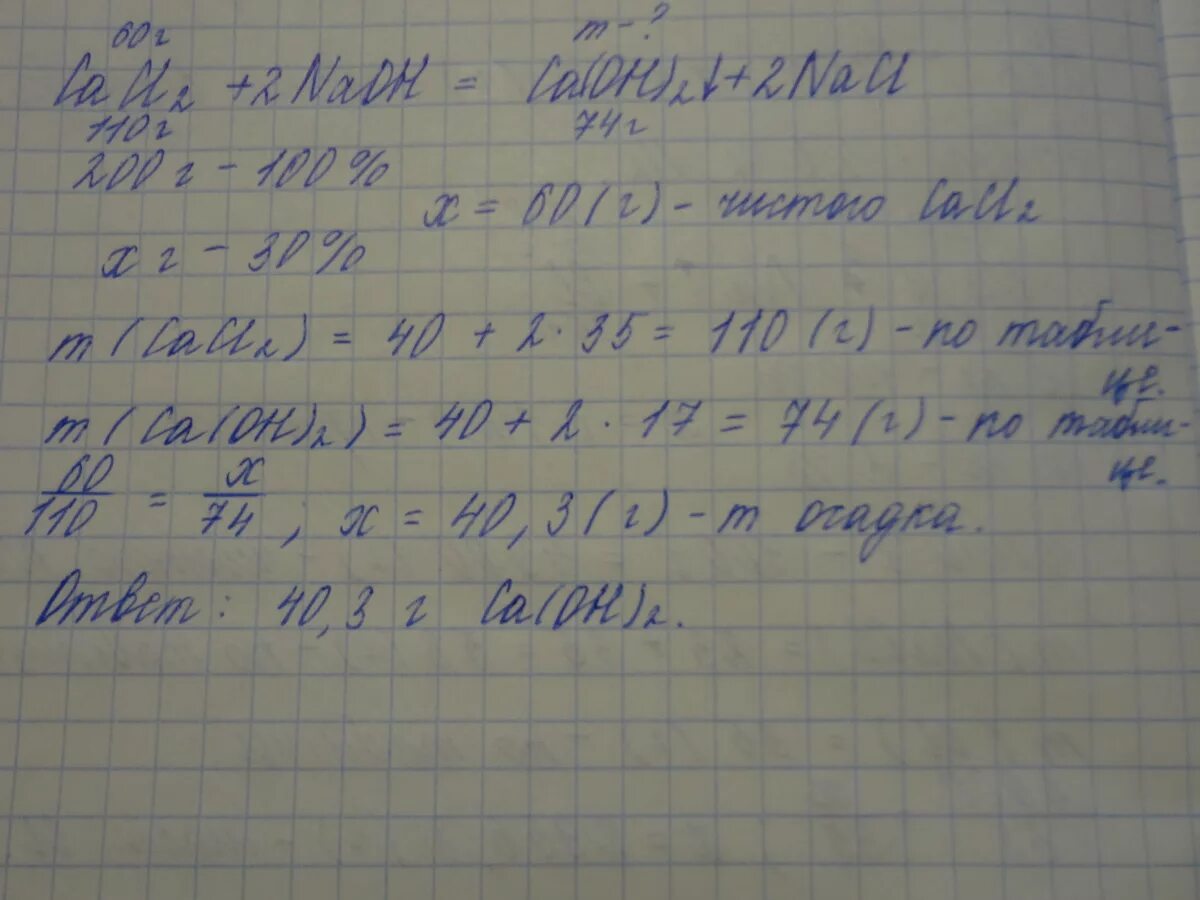 60г m-?
CaCl₂ + 2NaOH = Ca(OH)₂↓ + 2NaCl
110г 74г
200г - 100%
x = 60(г) - чистого CaCl₂
x г - 30%
m(CaCl₂) = 40 + 2·35 = 110(г) - по табли-
це.
m(Ca(OH)₂) = 40 + 2·17 = 74(г) - по табли-
це.
60/110 = x/74; x = 40,3(г) - m осадка.
Ответ: 40,3 г Ca(OH)₂.